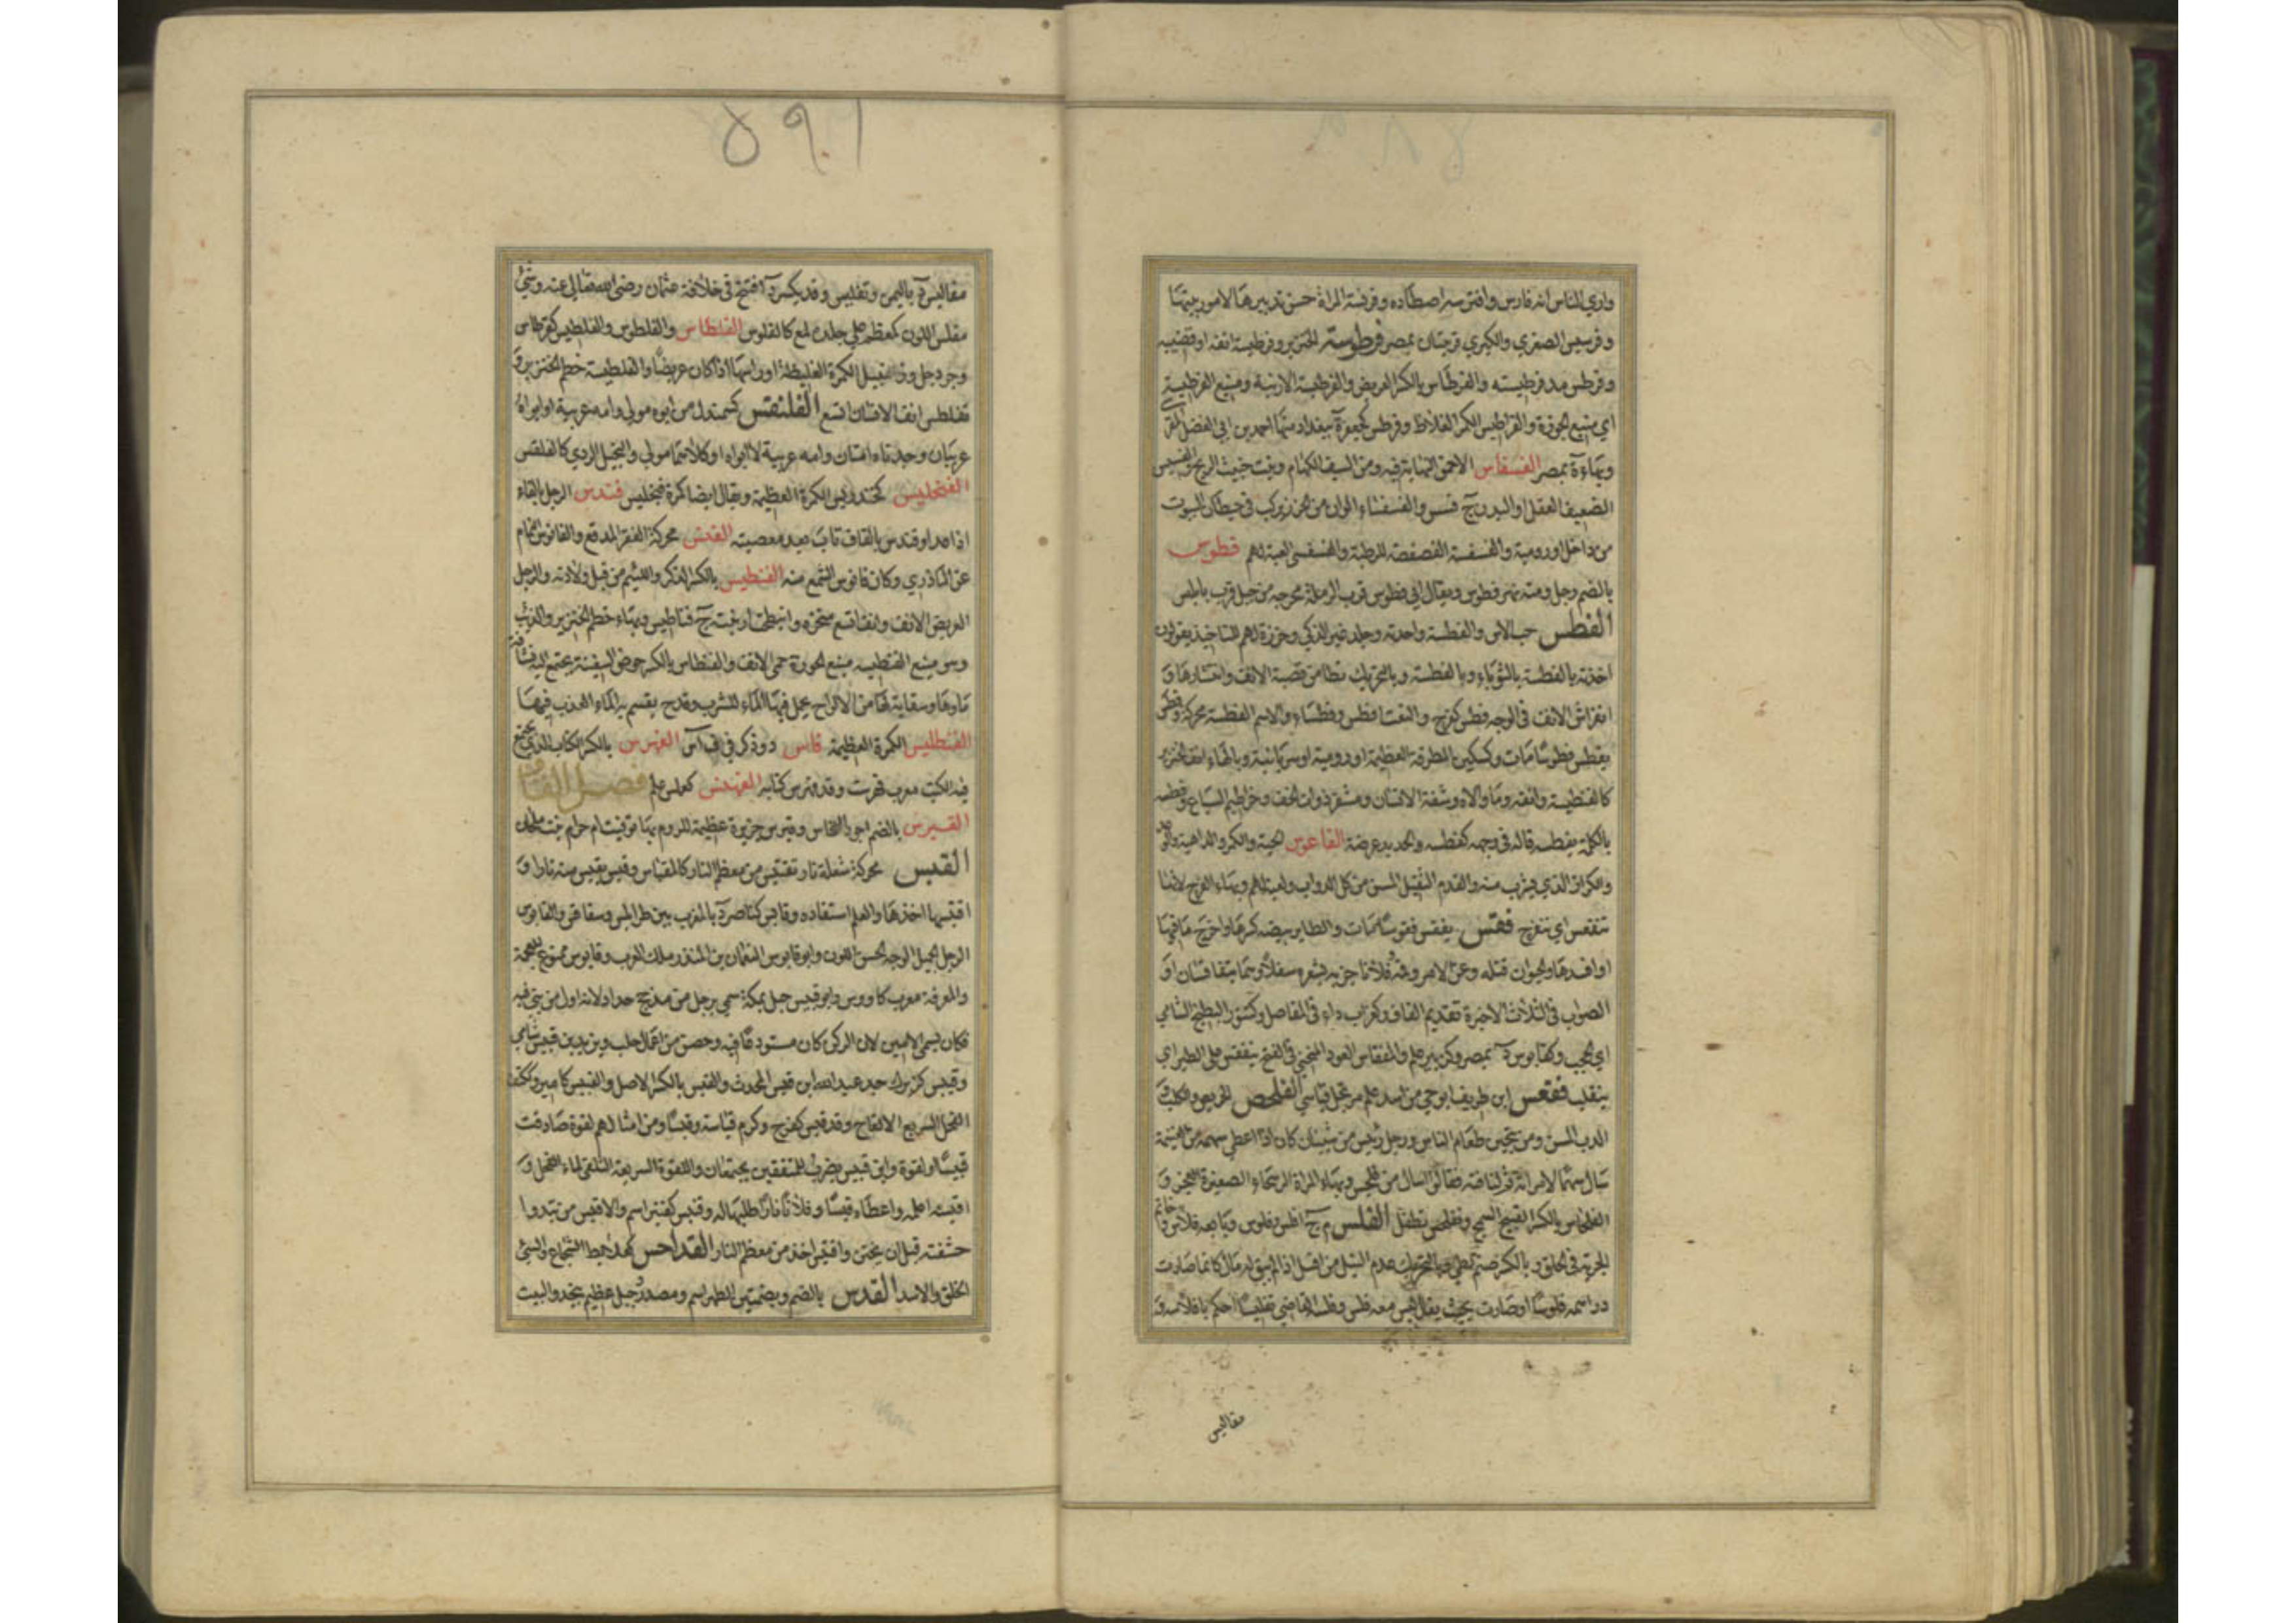 واري الناس انه فارس وافترسه اصطاده وفرسة المراة حسن تدبيرها لامور بيتها
وفرسيس الصغرى والكبرى قريتان بمصر فرطوسة الخنزير وفرطيسة انفه او قضيبه
وفرطس مد فرطيسته والفرطاس بالكسر العريض والفرطيسة الارنبة ومنيع الفرطيسة
اي منيع الحوزة والفراطيس الكمر الغلاظ وفرطس كجعفر ة ببغداد منها احمد بن ابي الفضل
وبهاء ة بمصر الفسفاس الاحمق النهاية فيه ومن السيف الكهام ونبت خبيث الريح والفسيس
الضعيف العقل او البدن ج فسس والفسفساء الوان من الخرز يركب في حيطان البيوت
من داخل او رومية والفسفسة الفصفصة للرطبة والفسفسى لعبة لهم فطوس
بالضم رجل ومنه نهر فطوس ويقال ابي فطوس قرب الرملة مخرجه من جبل قرب نابلس
الفطس حب الاس والفطسة واحدته وجلد غير الذكي وخرزة لهم للتاخيذ يقولون
اخذته بالفطسة بالثوباء والفطسة وبالتحريك تطامن قصبة الانف وانتشارها و
انفراش الانف في الوجه فطس كفرح والنعت افطس وفطساء والاسم الفطسة محركة وفطس
يفطس فطوسا مات وكسكين المطرقة العظيمة او رومية او سريانية وبالهاء انف الخنزير
كالفنطيسة وانفه وما والاه وشفة الانسان ومشفر ذوات الخف وخراطيم السباع وفطسه
بالكلمة يفطسه قاله في وجهه كفطسه والحديد عرضه الفاعوس الحية والكمر والداهية
والكراز الذي يشرب منه والفدم الثقيل المسن من كل الدواب ولعبة لهم وبهاء الفرج لانها
تتفعس اي تنفرج فقس يفقس فقوسا مات والطاير بيضه كسرها واخرج ما فيها
او افسدها والحيوان قتله وعن الامر وقمه وفلانا جزبه بشعره سفلا وهما يتفاقسان او
الصواب في الثلاث الاخيرة تقديم القاف وكغراب داء في المفاصل وكتنور البطيخ الشامي
اي الحبحب وكقابوس د بمصر وكزبير علم والمفقاس العود المنحني في الفخ ينفقس على الطير اي
ينقلب فقعس ابن طريف ابو حي من اسد علم مرتجل قياسي الفلحس الحريص والكلب و
الدب المسن ومن يتحين طعام الناس ورجل رئيس من شيبان كان اذا اعطي سهمه من الغنيمة
سال سهما لامراته ثم لناقته فقالوا اسال من فلحس وبهاء المراة الرسحاء الصغيرة العجز و
الفلحاس بالكسر القبيح السمج وتفلحس تطفل الفلس م ج افلس وفلوس وبايعه فلاس و
الجزية في الحلق وبالكسر صنم لطي وبالتحريك عدم النيل من افلس اذا لم يبق له مال كانما صارت
دراهمه فلوسا او صارت بحيث يقال ليس معه فلس وفلسه القاضي تفليسا حكم بافلاسه و
مقاليس
٥٩١
مفاليس د باليمن وتفليس وقد يكسر د افتتح في خلافة عثمان رضي الله تعالى عنه وشيء
مفلس اللون كمعظم على جلده لمع كالفلوس الفلطاس والفلطوس والفلطيس كقرطاس
وجردحل وزنجبيل الكمرة الغليظة او راسها اذا كان عريضا والفلطيسة خطم الخنزير و
تفلطس انف الانسان اتسع الفلنقس كسمندل من ابوه مولى وامه عربية او ابواه
عربيان وجدتاه امتان وامه عربية لا ابواه او كلاهما مولى والبخيل الردي كالفلقس
الفنجليس كخندريس الكمرة العظيمة ويقال ايضا كمرة فنجليس فندس الرجل بالفاء
اذا عدا وقندس بالقاف تاب بعد معصيته الفنس محركة الفقر المدقع والفانوس النمام
عن المازري وكان فانوس الشمع منه الفنطيس بالكسر الذكر واللئيم من قبل ولادته والرجل
العريض الانف وانف اتسع منخره وانبطحت ارنبته ج فناطيس وبهاء خطم الخنزير والذئب
وهو منيع الفنطيسة منيع الحوزة حمي الانف والفنطاس بالكسر حوض السفينة يجتمع اليه نشافة
مائها وسقاية لها من الالواح يحمل فيها الماء للشرب وقدح يقسم به الماء العذب فيها
الفنطليس الكمرة العظيمة فاس د وذكر في ف ا س الفهرس بالكسر الكتاب الذي تجمع
فيه الكتب معرب فهرست وقد فهرس كتابه الفهنس كعملس علم فصل القاف
القبرس بالضم اجود النحاس وقبرس جزيرة عظيمة للروم بها توفيت ام حرام بنت ملحان
القبس محركة شعلة نار تقتبس من معظم النار كالمقباس وقبس يقبس منه نارا و
اقتبسها اخذها والعلم استفاده وقابس كناصر د بالمغرب بين طرابلس وسفاقس والقابوس
الرجل الجميل الوجه الحسن اللون وابو قابوس النعمان بن المنذر ملك العرب وقابوس ممنوع للعجمة
والمعرفة معرب كاووس وابو قبيس جبل بمكة سمي برجل من مذحج حداد لانه اول من بنى فيه
فكان يسمى الامين لان الركن كان مستودعا فيه وحصن من اعمال حلب ويزيد بن قبيس شامي
وقبيس كزبير جد عبد الله ابن قبيس المحدث والقبس بالكسر الاصل والقبيس كامير وكتف
الفحل السريع الالقاح وقد قبس كفرح وكرم قباسة وقبسا ومن امثالهم لقوة صادفت
قبيسا ولقوة وابي قبيس يضرب للمتفقين يجتمعان واللقوة السريعة التلقي لماء الفحل و
اقبسه اعلمه واعطاه قبسا وفلانا نارا طلبها له وقنبس كقنبر اسم والاقبس من تبدوا
حشفته قبل ان يختن واقتبس اخذ من معظم النار القداحس كعلابط الشجاع والسيئ
الخلق والاسد القدس بالضم وبضمتين الطهر اسم ومصدر وجبل عظيم بنجد والبيت